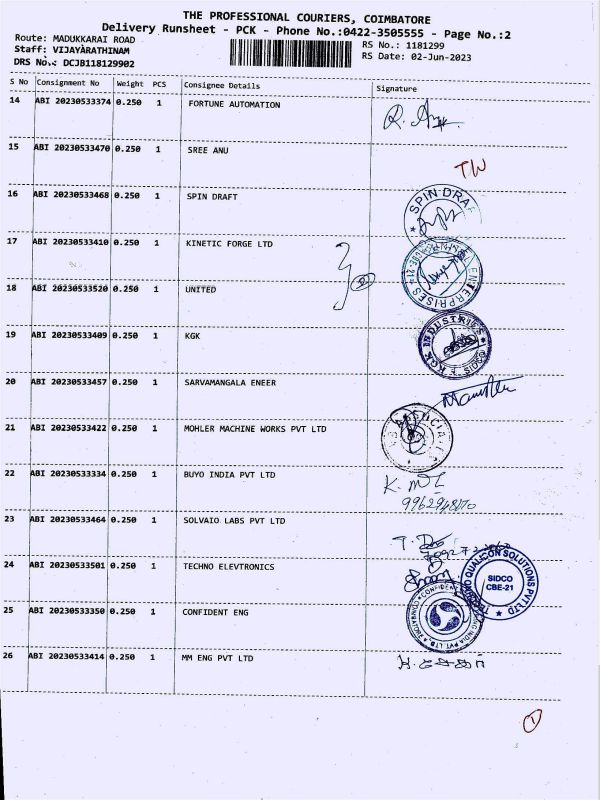 THE PROFESSIONAL COURIERS, COIMBATORE
Delivery Runsheet - PCK - Phone No.:0422-3505555 - Page No.:2
Route: MADUKKARAI ROAD
RS No.: 1181299
Staff: VIJAYARATHINAM
RS Date: 02-Jun-2023
DRS No.: DCJB118129902
S No Consignment No Weight PCS Consignee Details Signature
14 ABI 20230533374 0.250 1 FORTUNE AUTOMATION
15 ABI 20230533470 0.250 1 SREE ANU TW
16 ABI 20230533468 0.250 1 SPIN DRAFT SPIN DRAF
17 ABI 20230533410 0.250 1 KINETIC FORGE LTD ENTERPRISES
18 ABI 20230533520 0.250 1 UNITED
19 ABI 20230533409 0.250 1 KGK KGK INDUSTRIES
20 ABI 20230533457 0.250 1 SARVAMANGALA ENEER
21 ABI 20230533422 0.250 1 MOHLER MACHINE WORKS PVT LTD
22 ABI 20230533334 0.250 1 BUYO INDIA PVT LTD
23 ABI 20230533464 0.250 1 SOLVAIO LABS PVT LTD
24 ABI 20230533501 0.250 1 TECHNO ELEVTRONICS QUALICON SOLUTIONS PVT LTD SIDCO CBE-21
25 ABI 20230533350 0.250 1 CONFIDENT ENG
26 ABI 20230533414 0.250 1 MM ENG PVT LTD
1